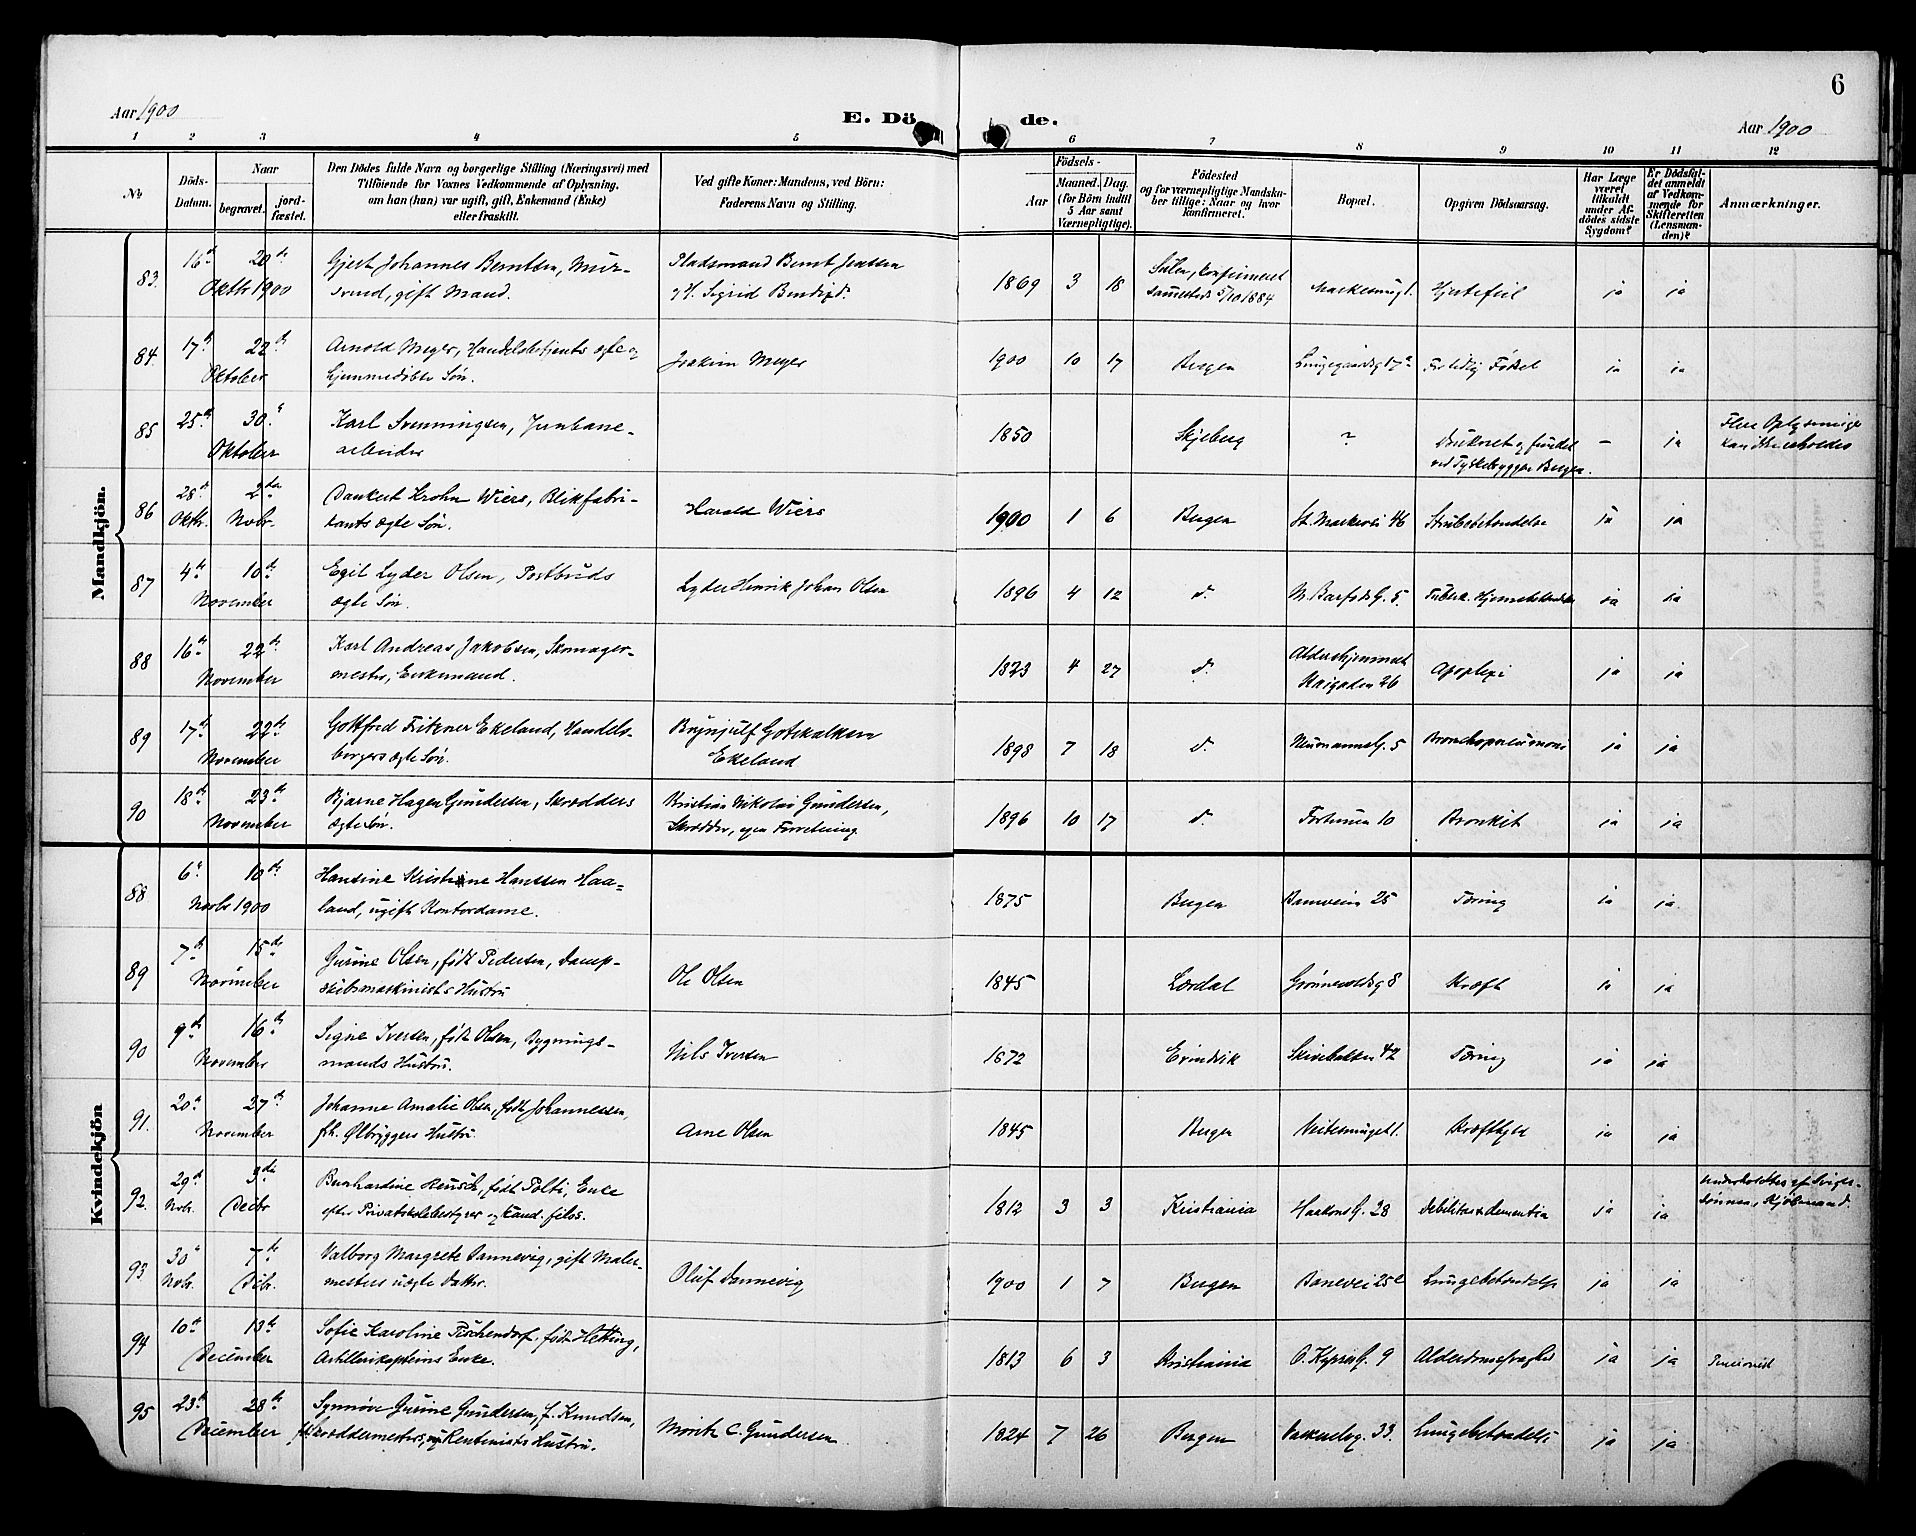 6
Aar 1900
E. Dö de.
Aar 1900
1 2 3 4 5 6 7 8 9 10 11 12
№
Döds-Datum.
Naar
begravet.
jord-fæstet.
Den Dödes fulde Navn og borgerlige Stilling (Næringsvei) med
Tilföiende for Voxnes Vedkommende af Oplysning,
om han (hun) var ugift, gift, Enkemand (Enke)
eller fraskilt.
Ved gifte Koner: Mandens, ved Börn:
Faderens Navn og Stilling.
Födsels-
Aar
Maaned. Dag.
(for Börn indtil
5 Aar samt
Værnepligtige).
Födested
og for værnepligtige Mandska-
ber tillige: Naar og hvor
konfirmeret.
Bopæl.
Opgiven Dödsaarsag.
Har Læge
været
tilkaldt
under Af-
dödes sidste
Sygdom?
Er Dödsfal-
det anmeldt
af Vedkom-
mende for
Skifteretten
(Lensman-
den)?
Anmærkninger.
Mandkjön.
83. 16de 20de Gjert Johannes Berntsen, Mur- Pladsmand Bernt Jenssen
Oktbr 1900 svend, gift Mand. og H. Sigrid
1869 3 18 konfirmeret
sammesteds 5/10 1884 Markesmug 1. Hjertefeil ja ja
84. 17de 22de Arnold Meyer, Handelsbetjents ægte og
Oktober hjemmedøbte Søn. Joakim Meyer
1900 10 17 Bergen Lungegaardsg 17a For tidlig Fødsel ja ja
85 25de 30. Karl Svenningsen, Jernbane-
Oktober arbeider
1850 Skjeberg ? Druknet og fundet
ved Tyskebryggen Bergen. – ja Flere Oplysninger
kan ikke erholdes
86 28de 2den Dankert Krohn Wiers, Blikfabri-
Oktb. Nobr. kants ægte Søn. Harald Wiers
1900 1 6 Bergen St. Markevei 46 Strubebetændelse ja ja
87 4de 10de Egil Lyder Olsen, Postbuds
November ægte Søn. Lyder Henrik Johan Olsen
1896 4 12 d. N. Barfods G. 5. Tuberk. Hjernebetændelse ja ja
88 16de 22de Karl Andreas Jakobsen, Skomager-
November mester, Enkemand.
1823 4 27 d. Aldershjemmet
Kaigaden 26 Apoplexi ja ja
89 17de 22de Gottfred Fitzner Ekeland, Handels- Brynjulf Gotskalksen
November borgers ægte Søn. Ekeland
1898 7 18 d. Neumanns G. 5 Bronchopneumoni ja ja
90 18de 23de Bjarne Hagen Gundersen, Skrædders Kristian Nikolai Gundersen,
November ægte Søn. Skrædder, egen Forretning
1896 10 17 d. Fortunen 10 Bronkit ja ja
Kvindekjön
88 6. 10de Hansine Kristine Hanssen Haa-
Novbr 1900 land, ugift Kontordame.
1875 Bergen Damveien 25 Tæring ja ja
89 7de 15de Gurine Olsen, født Pedersen, Damp-
November skibsmaskinists Hustru Ole Olsen
1845 Lærdal Grønnevoldsg 8 Kræft ja ja
90 9de 16de Signe Iversen, født Olsen, Bygnings-
November mands Hustru. Nils Iversen
1872 Evindvik Skivebakken 42 Tæring ja ja
91. 20de 27de Johanne Amalie Olsen, født Johannessen,
November fh. Ølbryggers Hustru. Arne Olsen
1845 Bergen Kræftbyld ja ja
92. 29de 3die Bernhardine Reusch, født Polti, Enke
Nobr. Decbr efter Privatskolebestyrer og kand. filos.
1812 3 3 Kristiania Haakons G. 28 Debilitas & dementia ja ja Underholdtes af Sviger-
sønnen, Kjøbmand.
93. 30. 7de Valborg Margrete Dannevig, gift Maler-
Nobr. Debr. mesters uægte Datter. Oluf Dannevig
1900 1 7 Bergen Damvei 25c Lungebetændelse ja ja
94 10de 13de Sofie Karoline Tischendorf, født Hetting,
December Artillerikapteins Enke.
1813 6 3 Kristiania O. Kyrres G. 9 Alderdomssvaghed ja ja Pensionist
95 23de 28de Synnøve Gurine Gundersen, f. Knudsen,
December fh. Skræddermesters, nu Rentenists Hustru. Moritz C. Gundersen
1824 7 26 Bergen Vaskerelvg. 33. Lungebetændelse ja ja